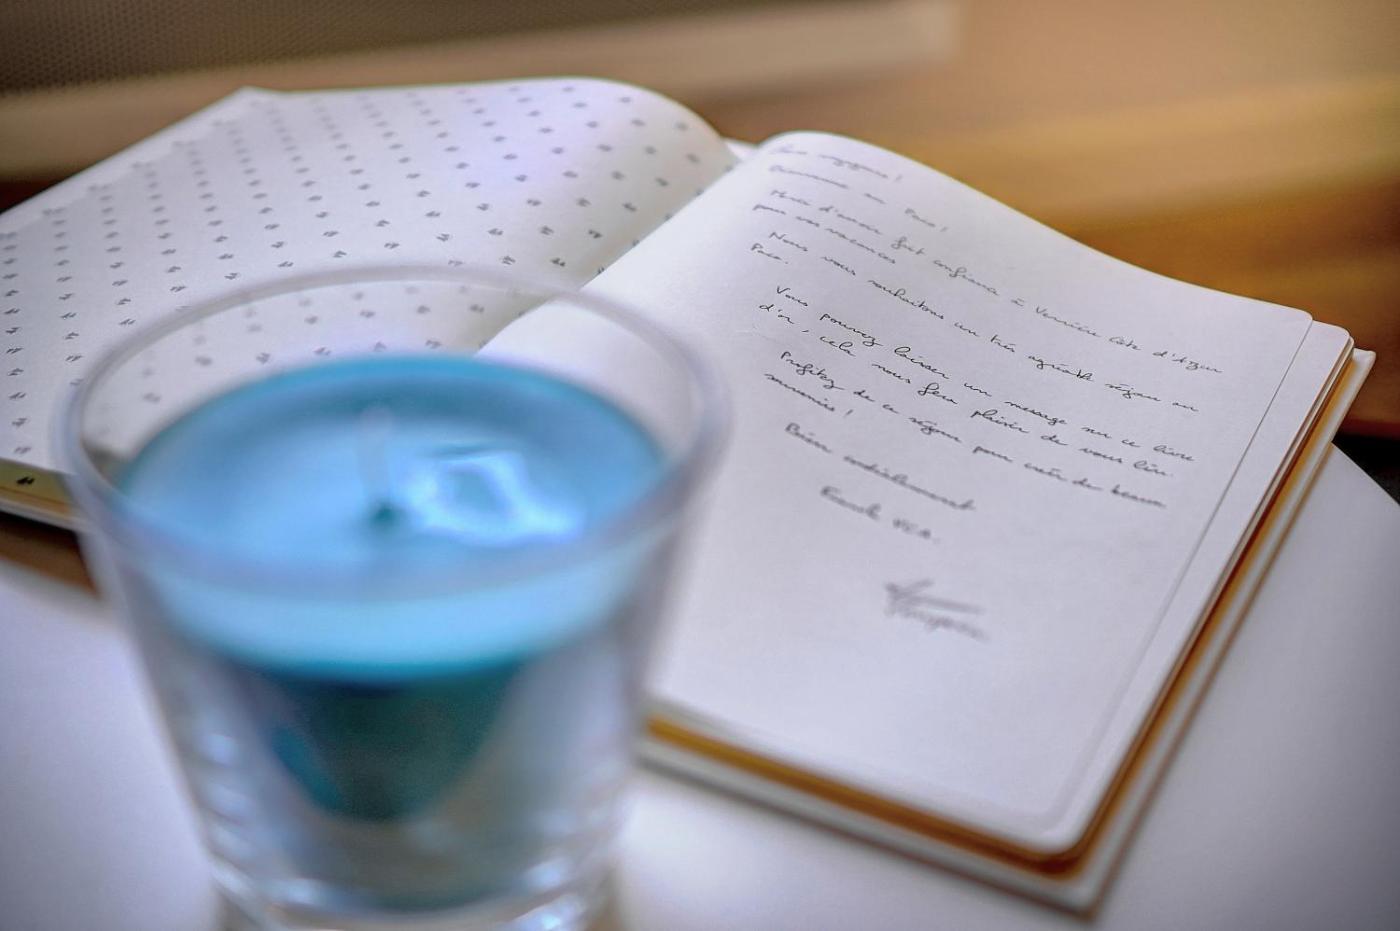 Chers voyageurs !
Bienvenue au Paco !
Merci d'avoir fait confiance à Verrière Côte d'Azur
pour vos vacances
Nous vous souhaitons un très agréable séjour au
Paco.
Vous pouvez laisser un message sur ce livre
d'or, cela nous fera plaisir de vous lire.
Profitez de ce séjour pour créer de beaux
souvenirs !
Bien cordialement
Franck